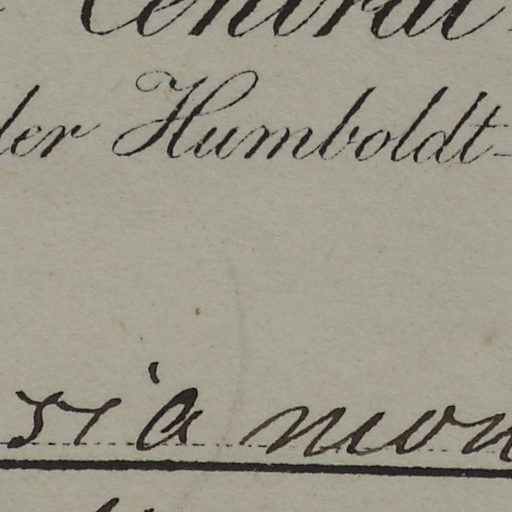 Central
der Humboldt-
sia mon